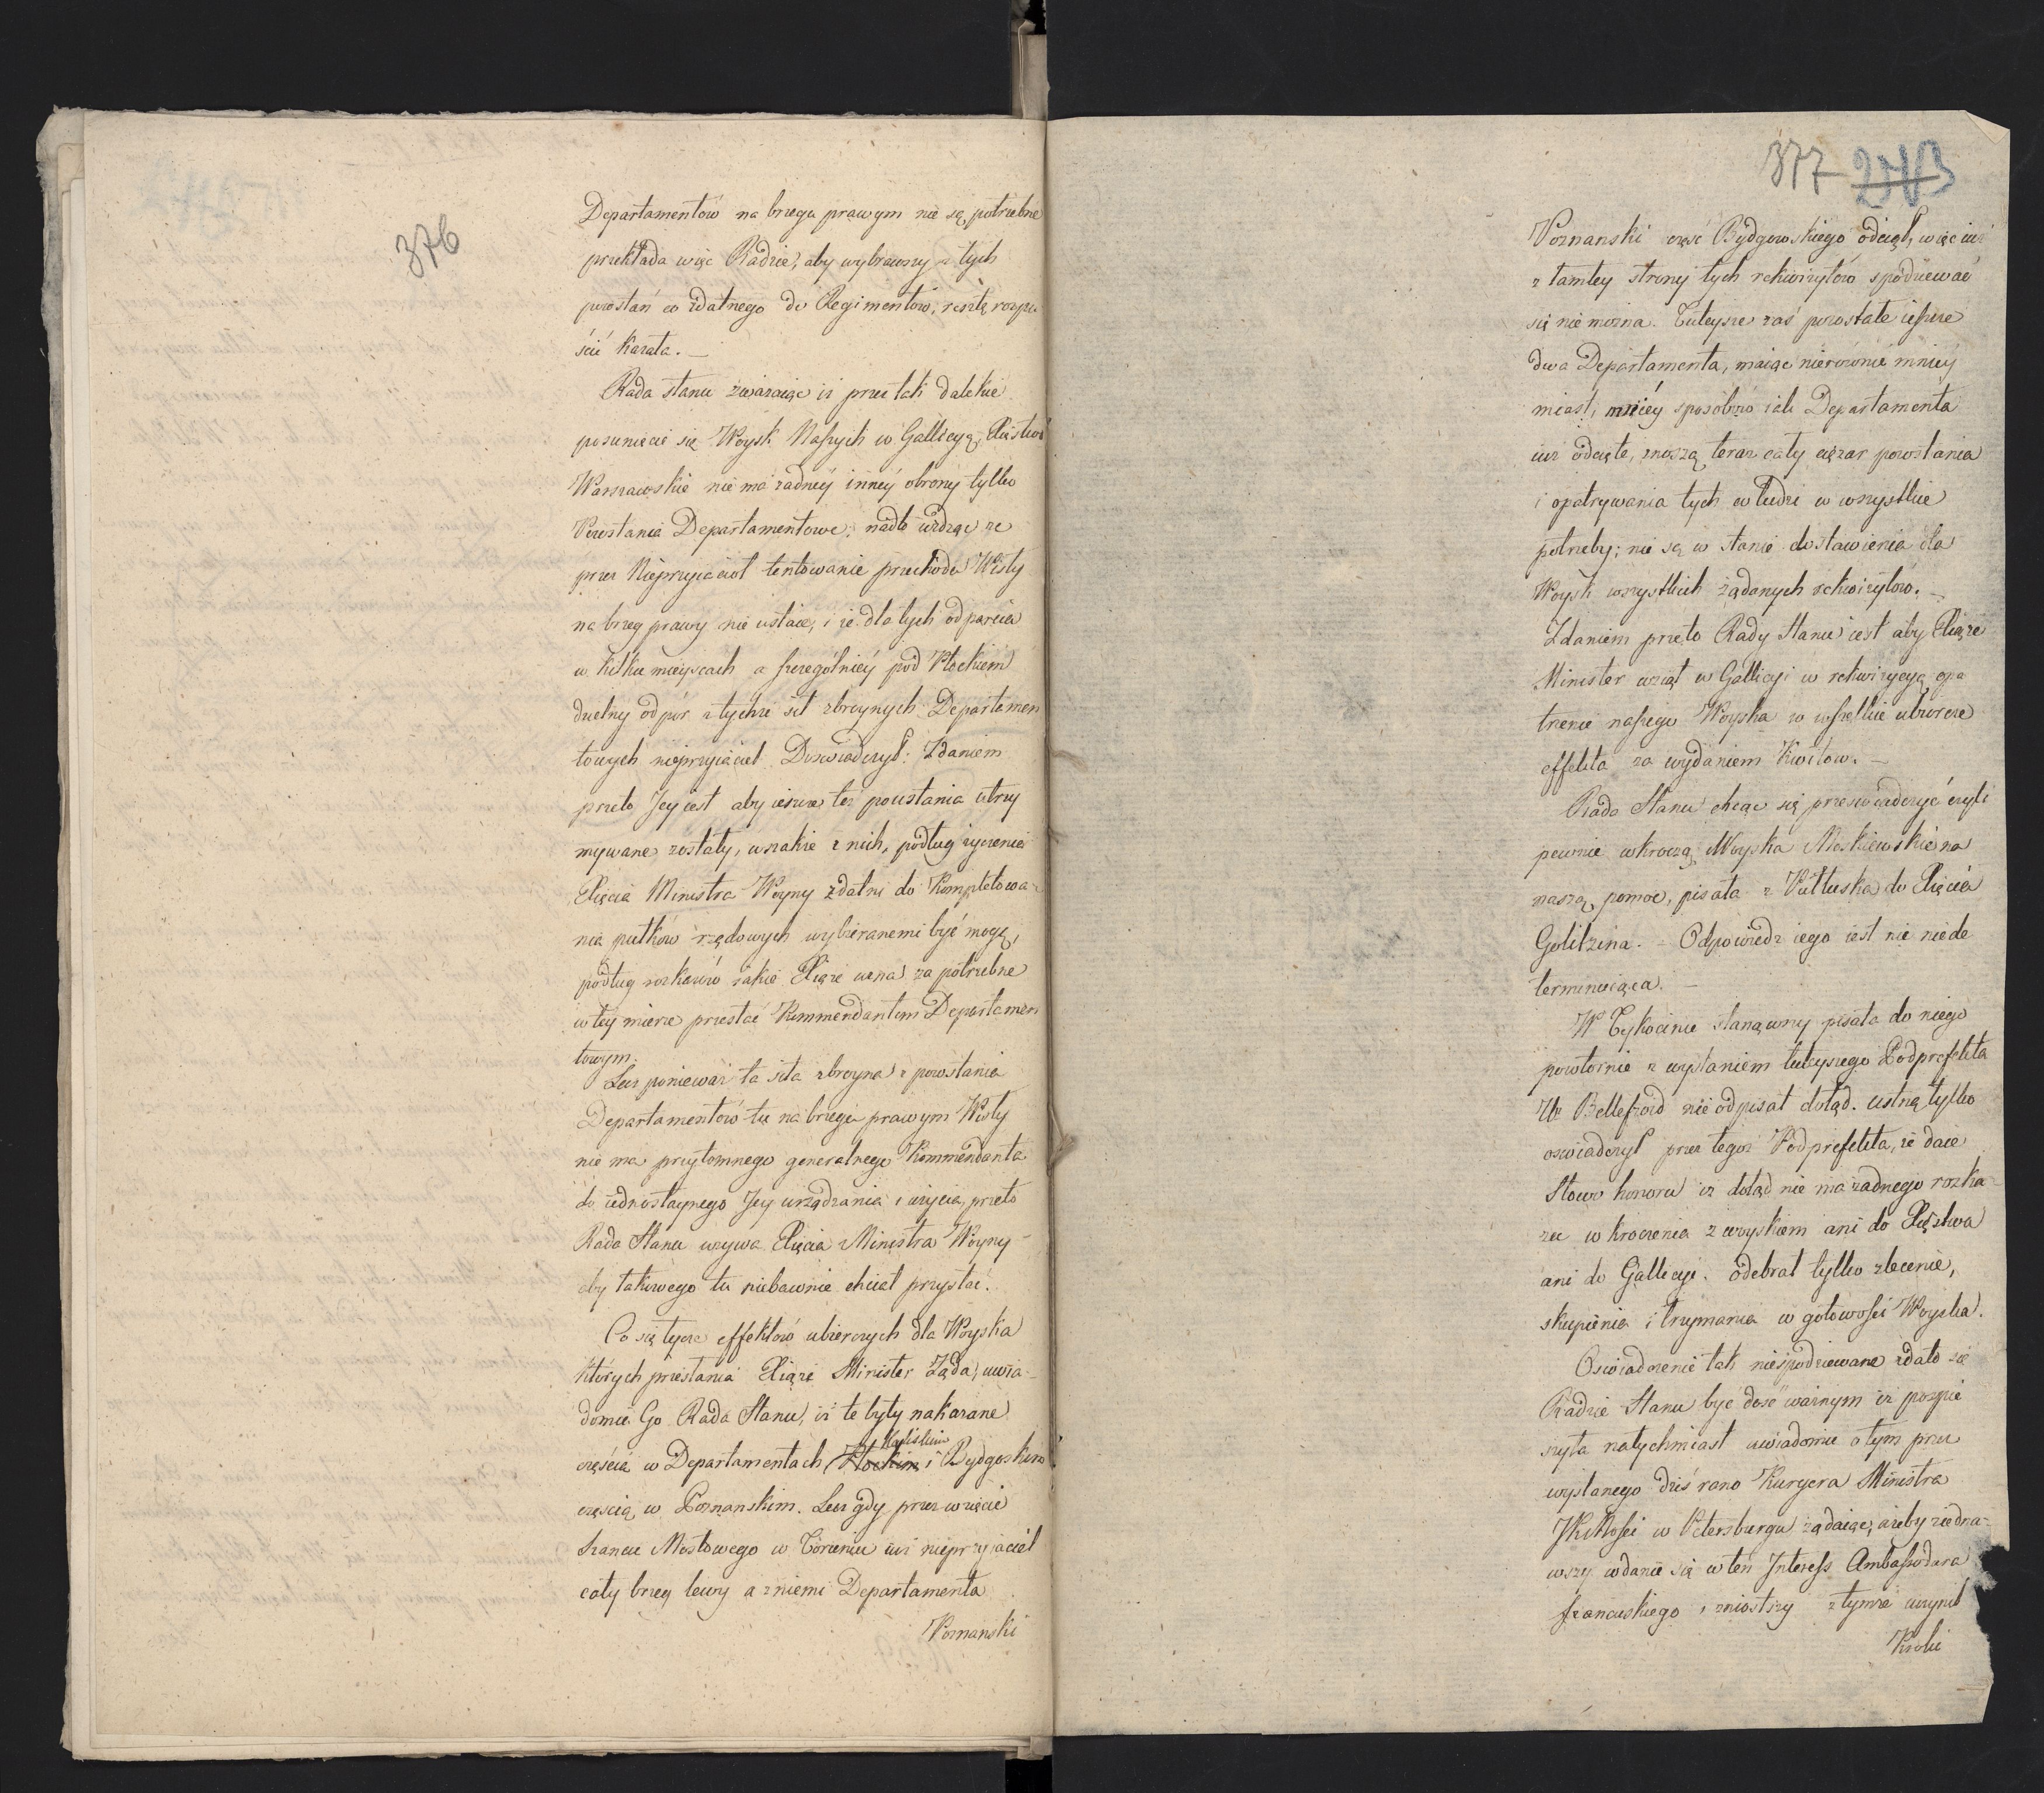 376
Departamentów na brzegu prawym nie są potrzebne
przekłada więc Radzie, aby wybrawszy z tych
powstań co zdatnego do Regimentów, resztę rozpu
ścić kazała. —
Rada stanu zważaiąc iż przez tak dalekie
posunięcie się Woysk Naszych w Gallicyą, Xięstwo
Warszawskie nie ma żadney inney obrony tylko
Powstania Departamentowe; nadto widząc że
przez Nieprzyiaciół tentowanie przechodu Wisły
na brzeg prawy nie ustaie, i że dla tych odparcia
w kilku mieyscach a szczególniéy pod Płockiem
dzielny odpór z tychże sił zbroynych Departamen
towych nieprzyiaciel Doświadczył: Zdaniem
przeto Jey iest aby ieszcze też powstania utrzy
mywane zostały, wszakże z nich, podług życzenia
Xięcia Ministra Woyny zdatni do Kompletowa-
nia pułków rzędowych wybieranemi być mogą,
podług rozkazów iakie Xiąże uzna za potrzebne
w tey mierze przesłać Kommendantom Departamen
towym.
Lecz ponieważ ta siła zbroyna z powstania
Departamentów tu na brzegu prawym Wisły
nie ma przytomnego generalnego Kommendanta
do iednostaynego Jey urządzania i użycia, przeto
Rada Stanu wzywa Xięcia Ministra Woyny
aby takowego tu niebawnie chciał przysłać.
Co się tycze effektów ubierczych dla Woyska
których przesłania Xiąże Minister Żąda, uwia-
domia Go Rada Stanu, iż te były nakazane
Kaliskim
częścią w Departamentach Płockim i Bydgoskim
częścią w Poznanskim. Lecz gdy przez wzięcie
szańcu Mostowego w Toruniu iuż nieprzyiaciel
cały brzeg lewy a z niemi Departamenta
Poznanski
377 243
Poznanski część Bydgowskiego odciął, więc iuż
z tamtey strony tych rekwizytów spodziewać
się nie można. Tuteysze zaś pozostałe ieszcze
dwa Departamenta, maiąc nierównie mniey
miast, mniéy sposobno iak Departamenta
iuż odcięte, znoszą teraz cały ciężar powstania
i opatrywania tych co ludzi w wszystkie
potrzeby; nie są w stanie dostawienia dla
Woysk wszystkich żądanych rekwizytów. —
Zdaniem przeto Rady Stanu iest aby Xiąże
Minister wziął w Gallicyi w rekwizycyą opa
trzenie naszego Woyska w wszelkie ubiorcze
effekta za wydaniem Kwitów. —
Rada Stanu chcąc się przeswiadczyć czyli
pewnie wkroczą Woyska Moskiewskie na
naszą pomoc, pisała z Pułtuska do Xięcia
Golitzina. — Odpowiedz iego iest nic niede
terminuiąca. —
W Tykocinie stanąwszy pisała do niego
powtórnie z wysłaniem tuteyszego Podprefekta
Ur Bellefroid nie odpisał dotąd. ustną tylko
oswiadczył przez tegoż Podprefekta, że daie
Słowo honoru iż dotąd nie ma żadnego rozka-
zu wkroczenia z woyskiem ani do Xięstwa
ani do Gallicyi. odebrał tylko zlecenie,
skupienia i trzymania w gotowości Woyska.
Oswiadczenie tak niespodziewane zdało się
Radzie Stanu być dość ważnym iż pospie
szyła natychmiast uwiadomić o tym przez
wysłanego dziś rano Kuryera Ministra
WKMości w Petersburgu żądaiąc, ażeby ziedna-
wszy wdanie się w ten Interess Ambassadora
francuskiego i zniosłszy z tymże uczynił
Kroki